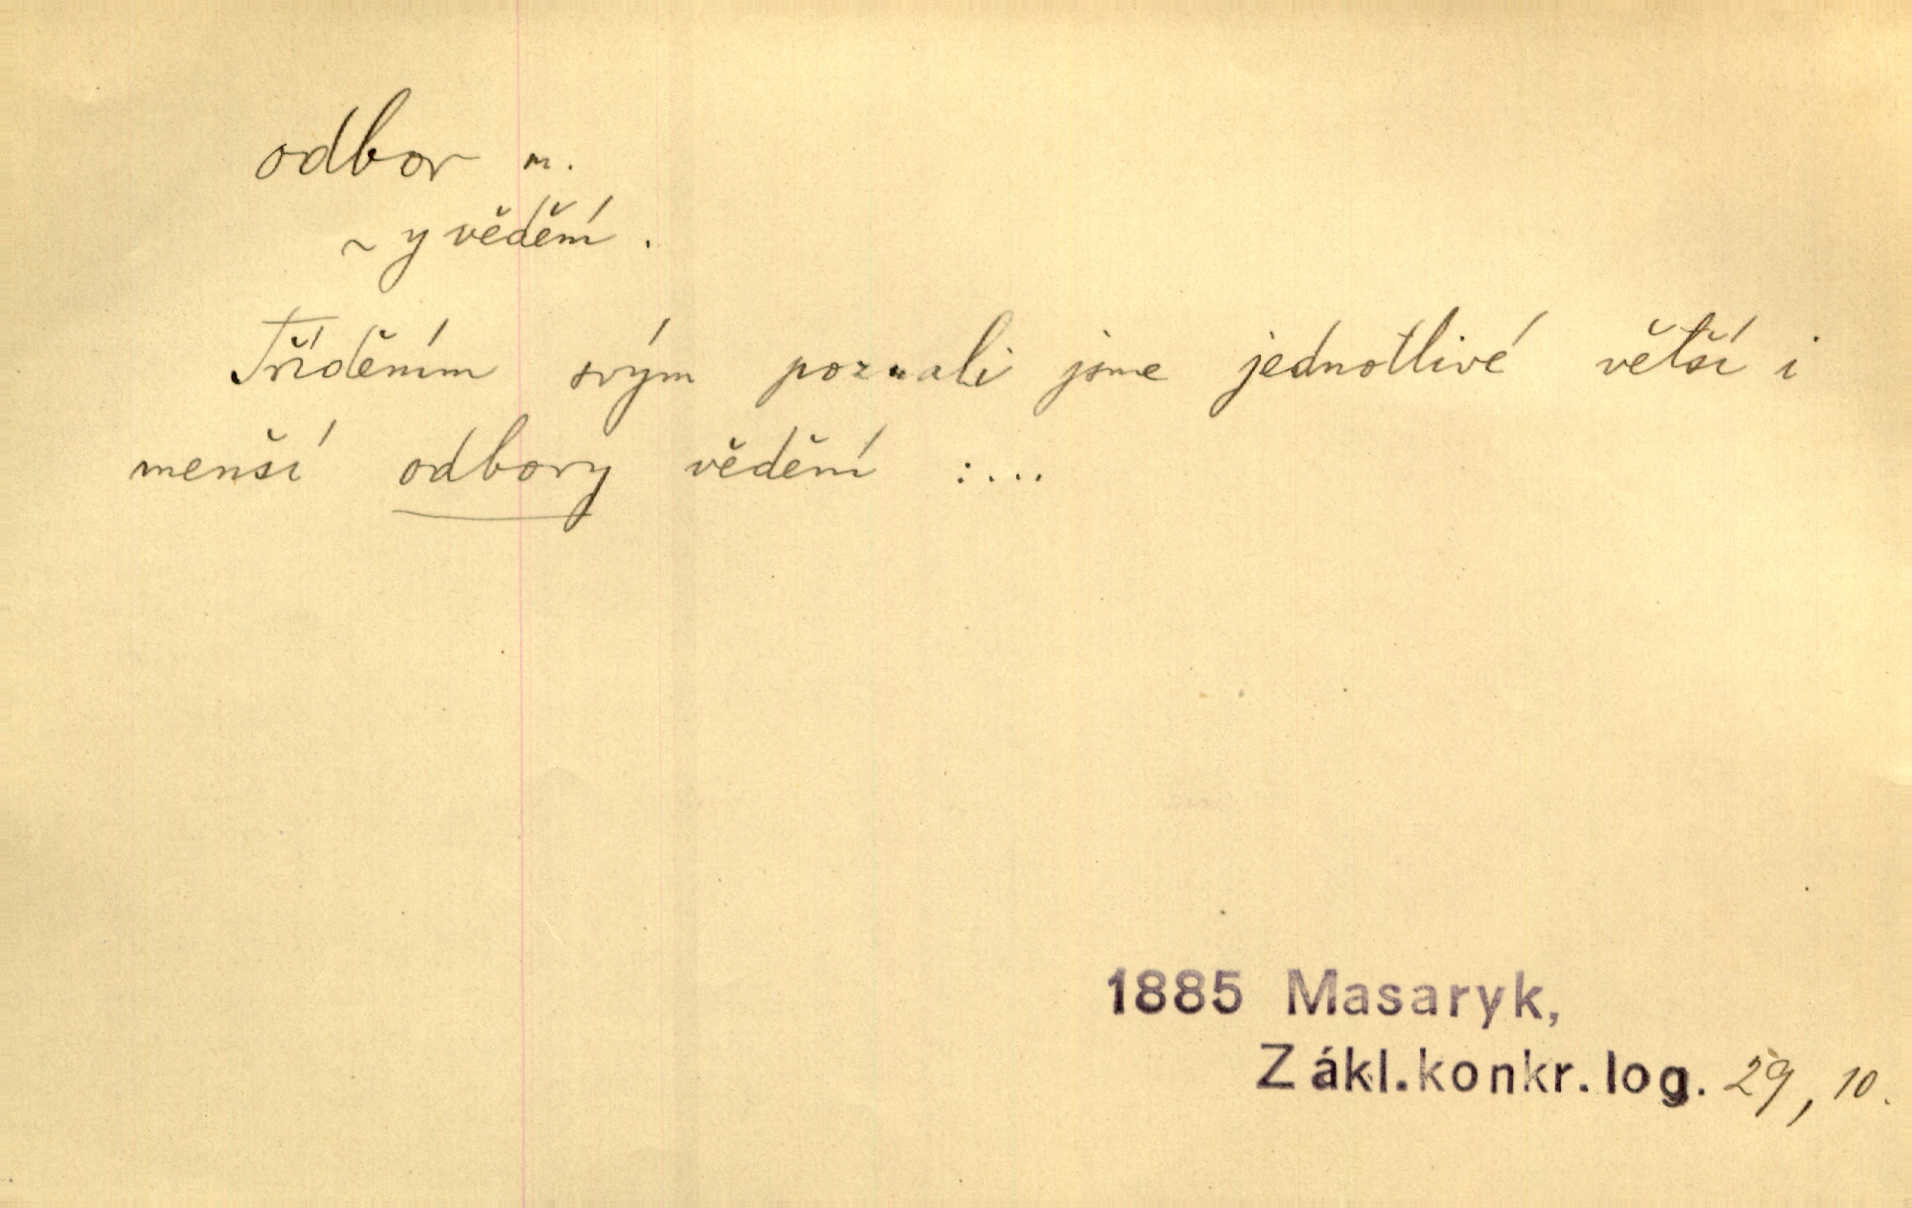 odbor m.
~ y vědění.
Tříděním svým poznali jsme jednotlivé větší i
menší odbory vědění :...
1885 Masaryk,
Zákl.konkr.log. 29, 10.